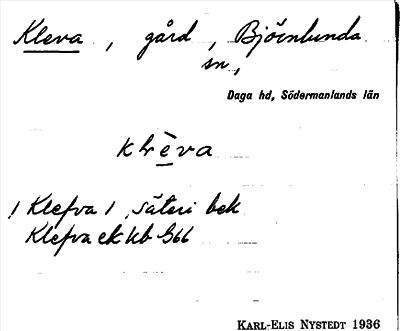 Kleva, gård, Björnlunda
sn,
Daga hd, Södermanlands län
klèva
/ Klefva /, säteri bek
Klefva ek kb G66
KARL-ELIS NYSTEDT 1936